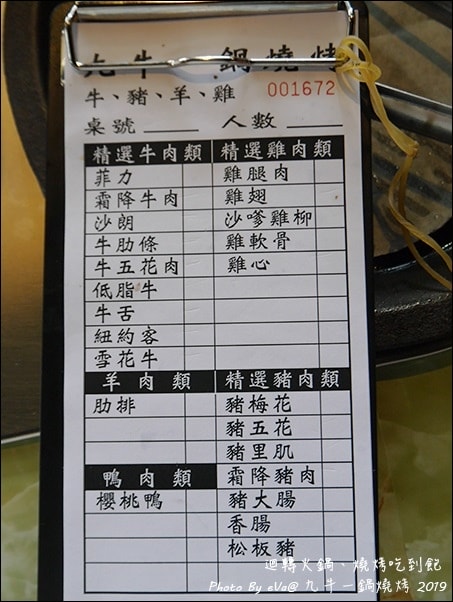 九牛 鍋燒烤
牛、豬、羊、雞 001672
桌號 人數
精選牛肉類 精選雞肉類
菲力 雞腿肉
霜降牛肉 雞翅
沙朗 沙嗲雞柳
牛肋條 雞軟骨
牛五花肉 雞心
低脂牛
牛舌
紐約客
雪花牛
羊肉類 精選豬肉類
肋排 豬梅花
豬五花
豬里肌
鴨肉類 霜降豬肉
櫻桃鴨 豬大腸
香腸
松板豬
迴轉火鍋、燒烤吃到飽
Photo By eVa@ 九牛一鍋燒烤 2019